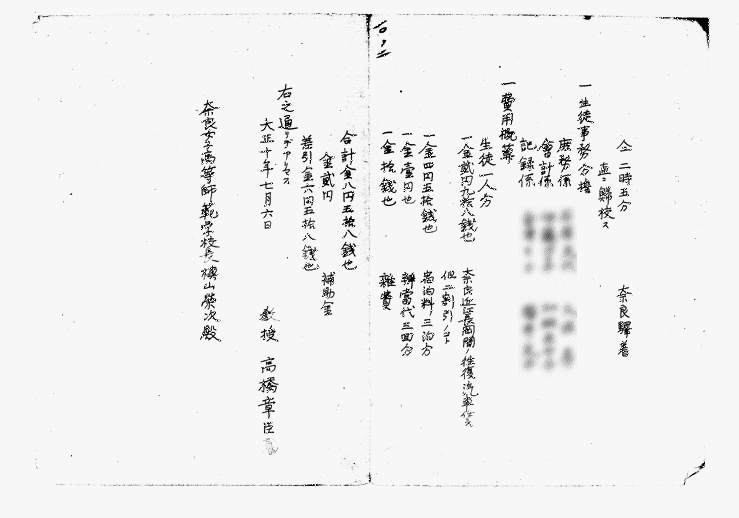 仝 二時五分 奈良驛着
直ニ歸校ス
一 生徒事務分擔
庶務係
會計係
記録係
一 費用概算
生徒一人分
一金貳円九拾八銭也 奈良近江長岡間ノ往復汽車賃
但二割引ノコト
一金四円五拾銭也 宿泊料三泊分
一金壹円也 辨當代三回分
一金拾銭也 雑費
合計金八円五拾八銭也
金貳円 補助金
差引金六円五拾八銭也
右之通リデアリマス
大正十年七月六日
教授 高橋章臣
奈良女子高等師範学校長槇山榮次殿